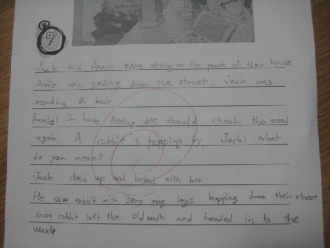 Jack and Annie were sitting on the porch of their house
Annie was gazing down the street. Jack was
reading a book.
Annie! I have feeling we should check the wood
again. A rabbit's hopping by, Jack! what
do you mean?
Jack stood up and looked with her
He saw rabbit with very long legs hopping down their street
soon rabbit left the sidewalk and headed in to the
woods